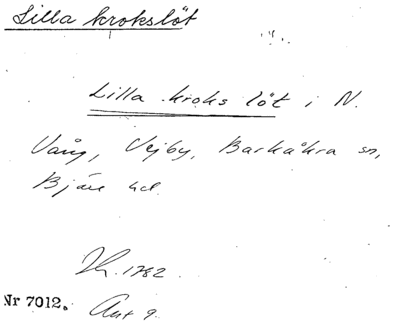 Lilla krokslöt
Lilla kroks löt i N.
Vång, Vejby, Barkåkra sn,
Bjäre hd.
Zh. 1782.
Nr 7012. Akt 9.